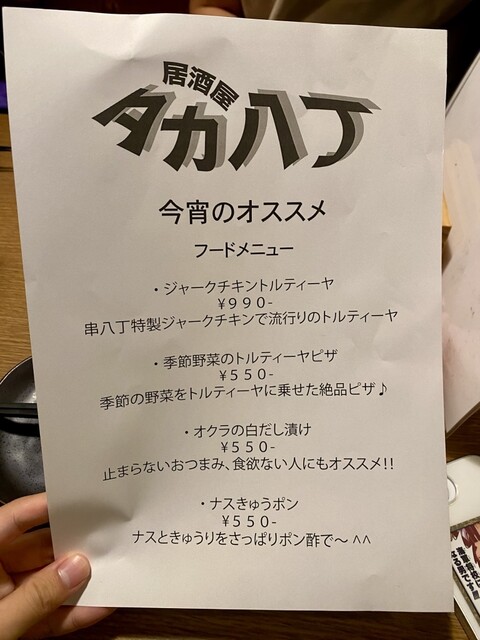 居酒屋
タカ八丁
今宵のオススメ
フードメニュー
・ジャークチキントルティーヤ
¥９９０-
串八丁特製ジャークチキンで流行りのトルティーヤ
・季節野菜のトルティーヤピザ
¥５５０-
季節の野菜をトルティーヤに乗せた絶品ピザ♪
・オクラの白だし漬け
¥５５０-
止まらないおつまみ、食欲ない人にもオススメ!!
・ナスきゅうポン
¥５５０-
ナスときゅうりをさっぱりポン酢で〜 ^^